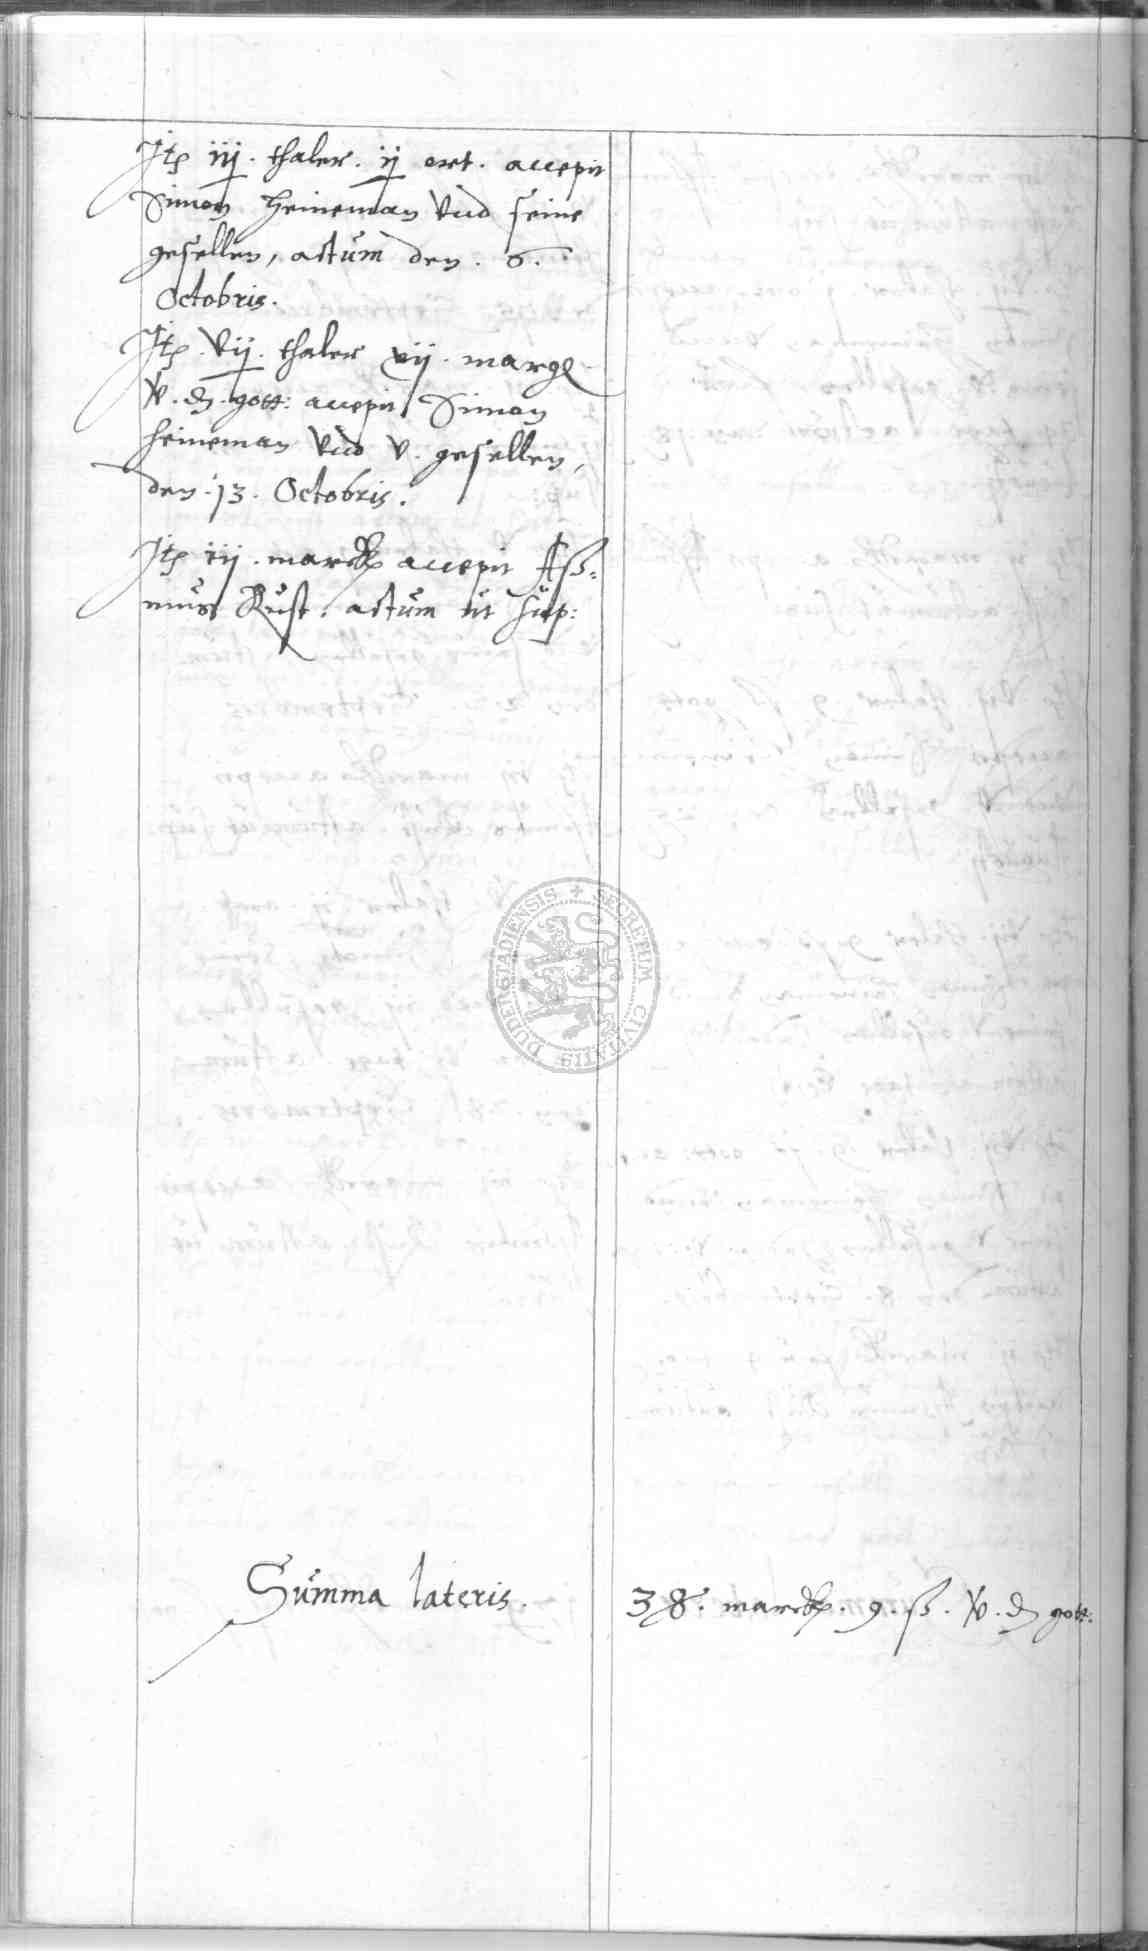 Itp iij . thaler . ij ort . accepit
Simon Heineman vnd seine
gesellen, actum den . 6 .
Octobris .
Itp . vij . thaler xij . margl
v . d . gott : accepit Simon
Heineman vnd v . gesellen,
den . 13 . Octobris .
Itp iij . marck accepit Aß=
mus Rust . actum ut sup :
Summa lateris . 38 . marck . 9 . ß . v . d gott :
SECRETUM CIVITATIS DUDERSTADIENSIS